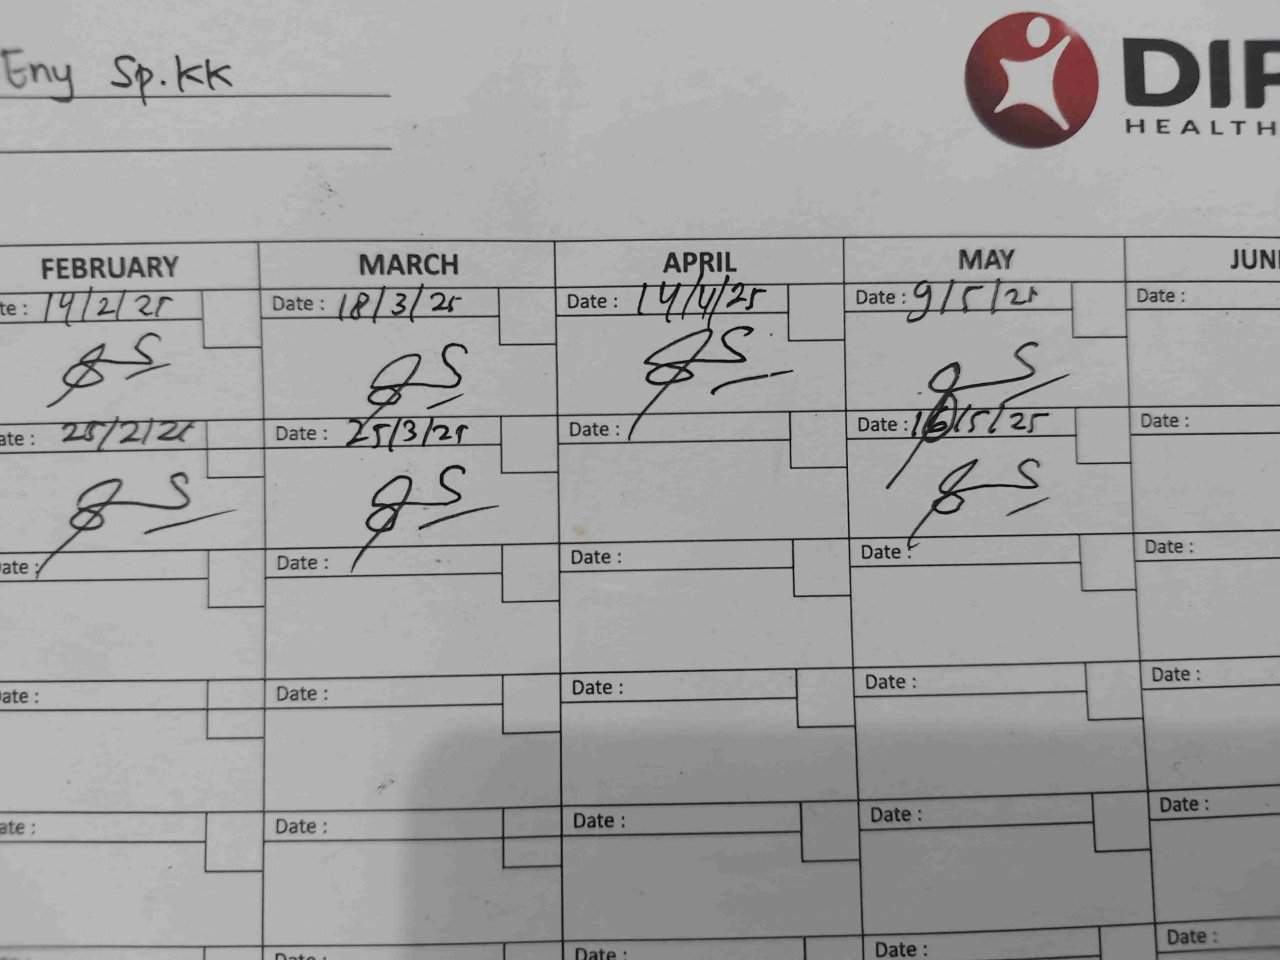 Eny Sp.KK
DIP
HEALTH
FEBRUARY MARCH APRIL MAY JUNE
te : 14/2/25 Date : 18/3/25 Date : 14/4/25 Date : 9/5/25 Date :
ate : 25/2/25 Date : 25/3/25 Date : Date : 16/5/25 Date :
ate : Date : Date : Date : Date :
ate : Date : Date : Date : Date :
ate : Date : Date : Date : Date :
Date : Date : Date : Date :